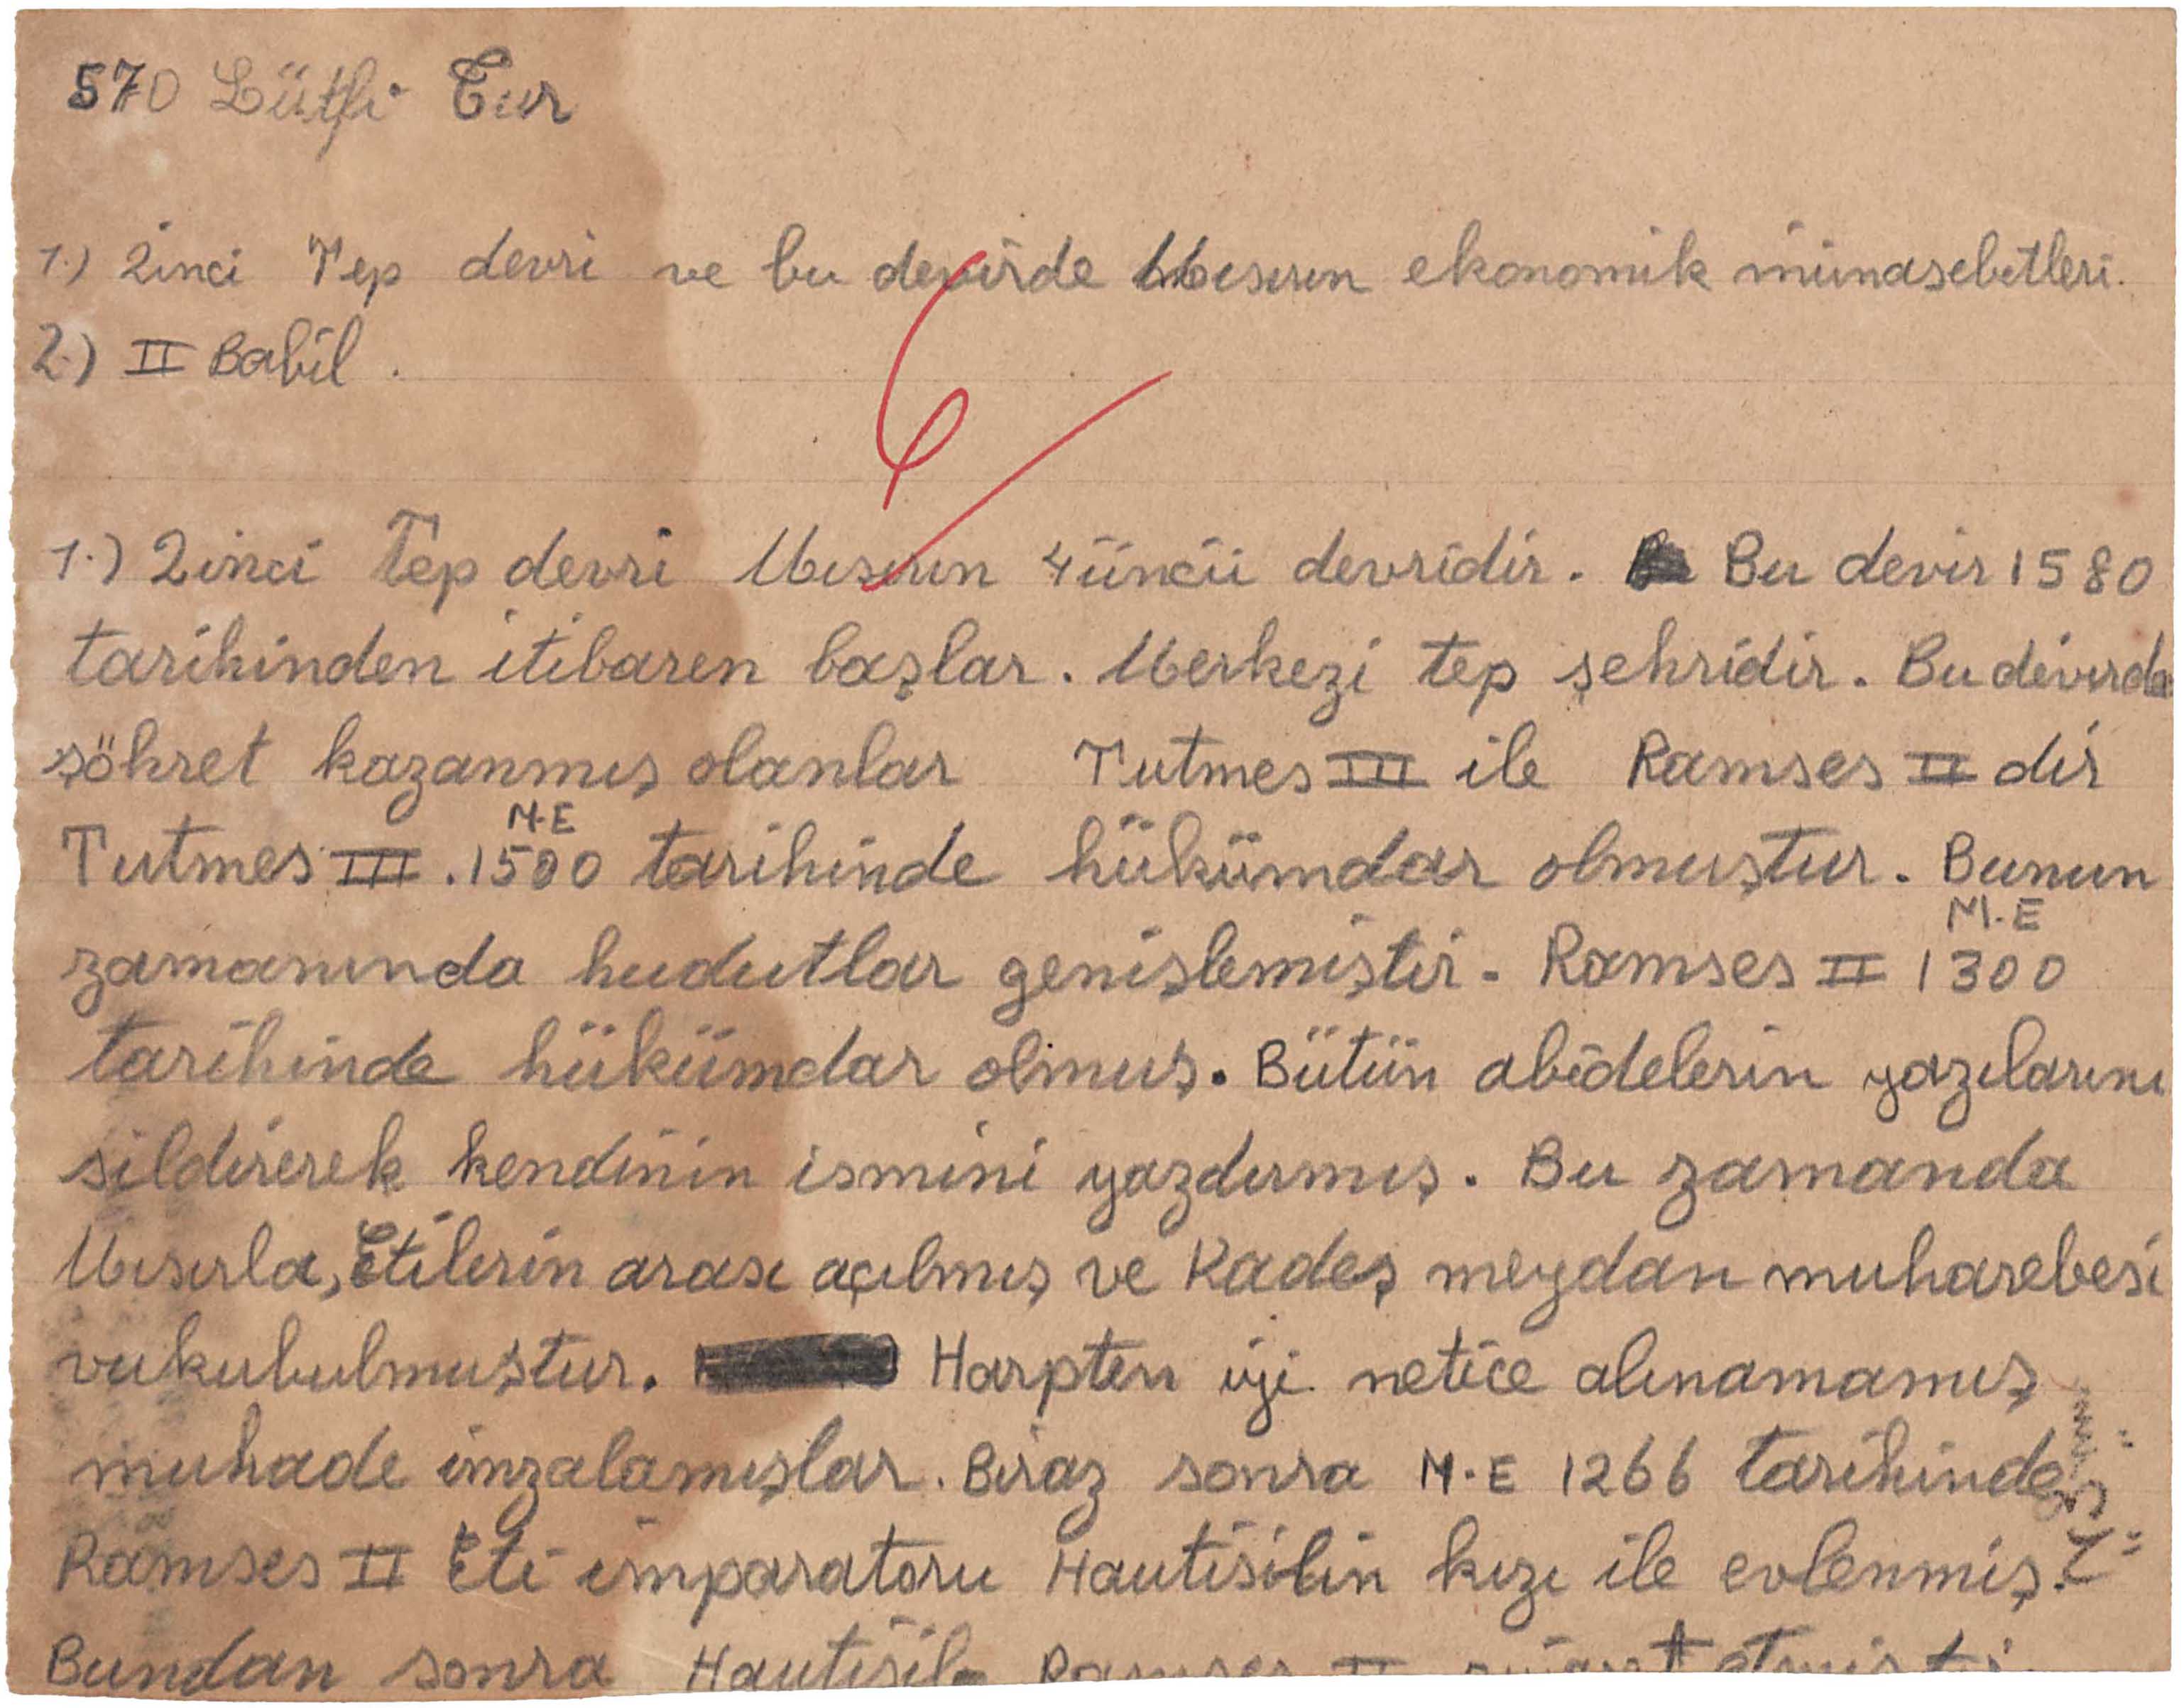 570 Lütfi Tur
1.) 2inci Tep devri ve bu devirde Mısırın ekonomik münasebetleri.
2.) II Babil.
6
1.) 2inci Tep devri Mısırın 4üncü devridir. Bu devir 1580
tarihinden itibaren başlar. Merkezi tep şehridir. Bu devirde
şöhret kazanmış olanlar Tutmes III ile Ramses II dir
M.E
Tutmes III. 1500 tarihinde hükümdar olmuştur. Bunun
M.E
zamanında hudutlar genişlemiştir. Ramses II 1300
tarihinde hükümdar olmuş. Bütün abidelerin yazılarını
sildirerek kendinin ismini yazdırmış. Bu zamanda
Mısırla, Etilerin arası açılmış ve Kadeş meydan muharebesi
vukubulmuştur. Harpten iyi netice alınamamış
muhade imzalamışlar. Biraz sonra M.E 1266 tarihinde
Ramses II Eti imparatoru Hautisilin kızı ile evlenmiş.
Bundan sonra Hautisile Ramses II